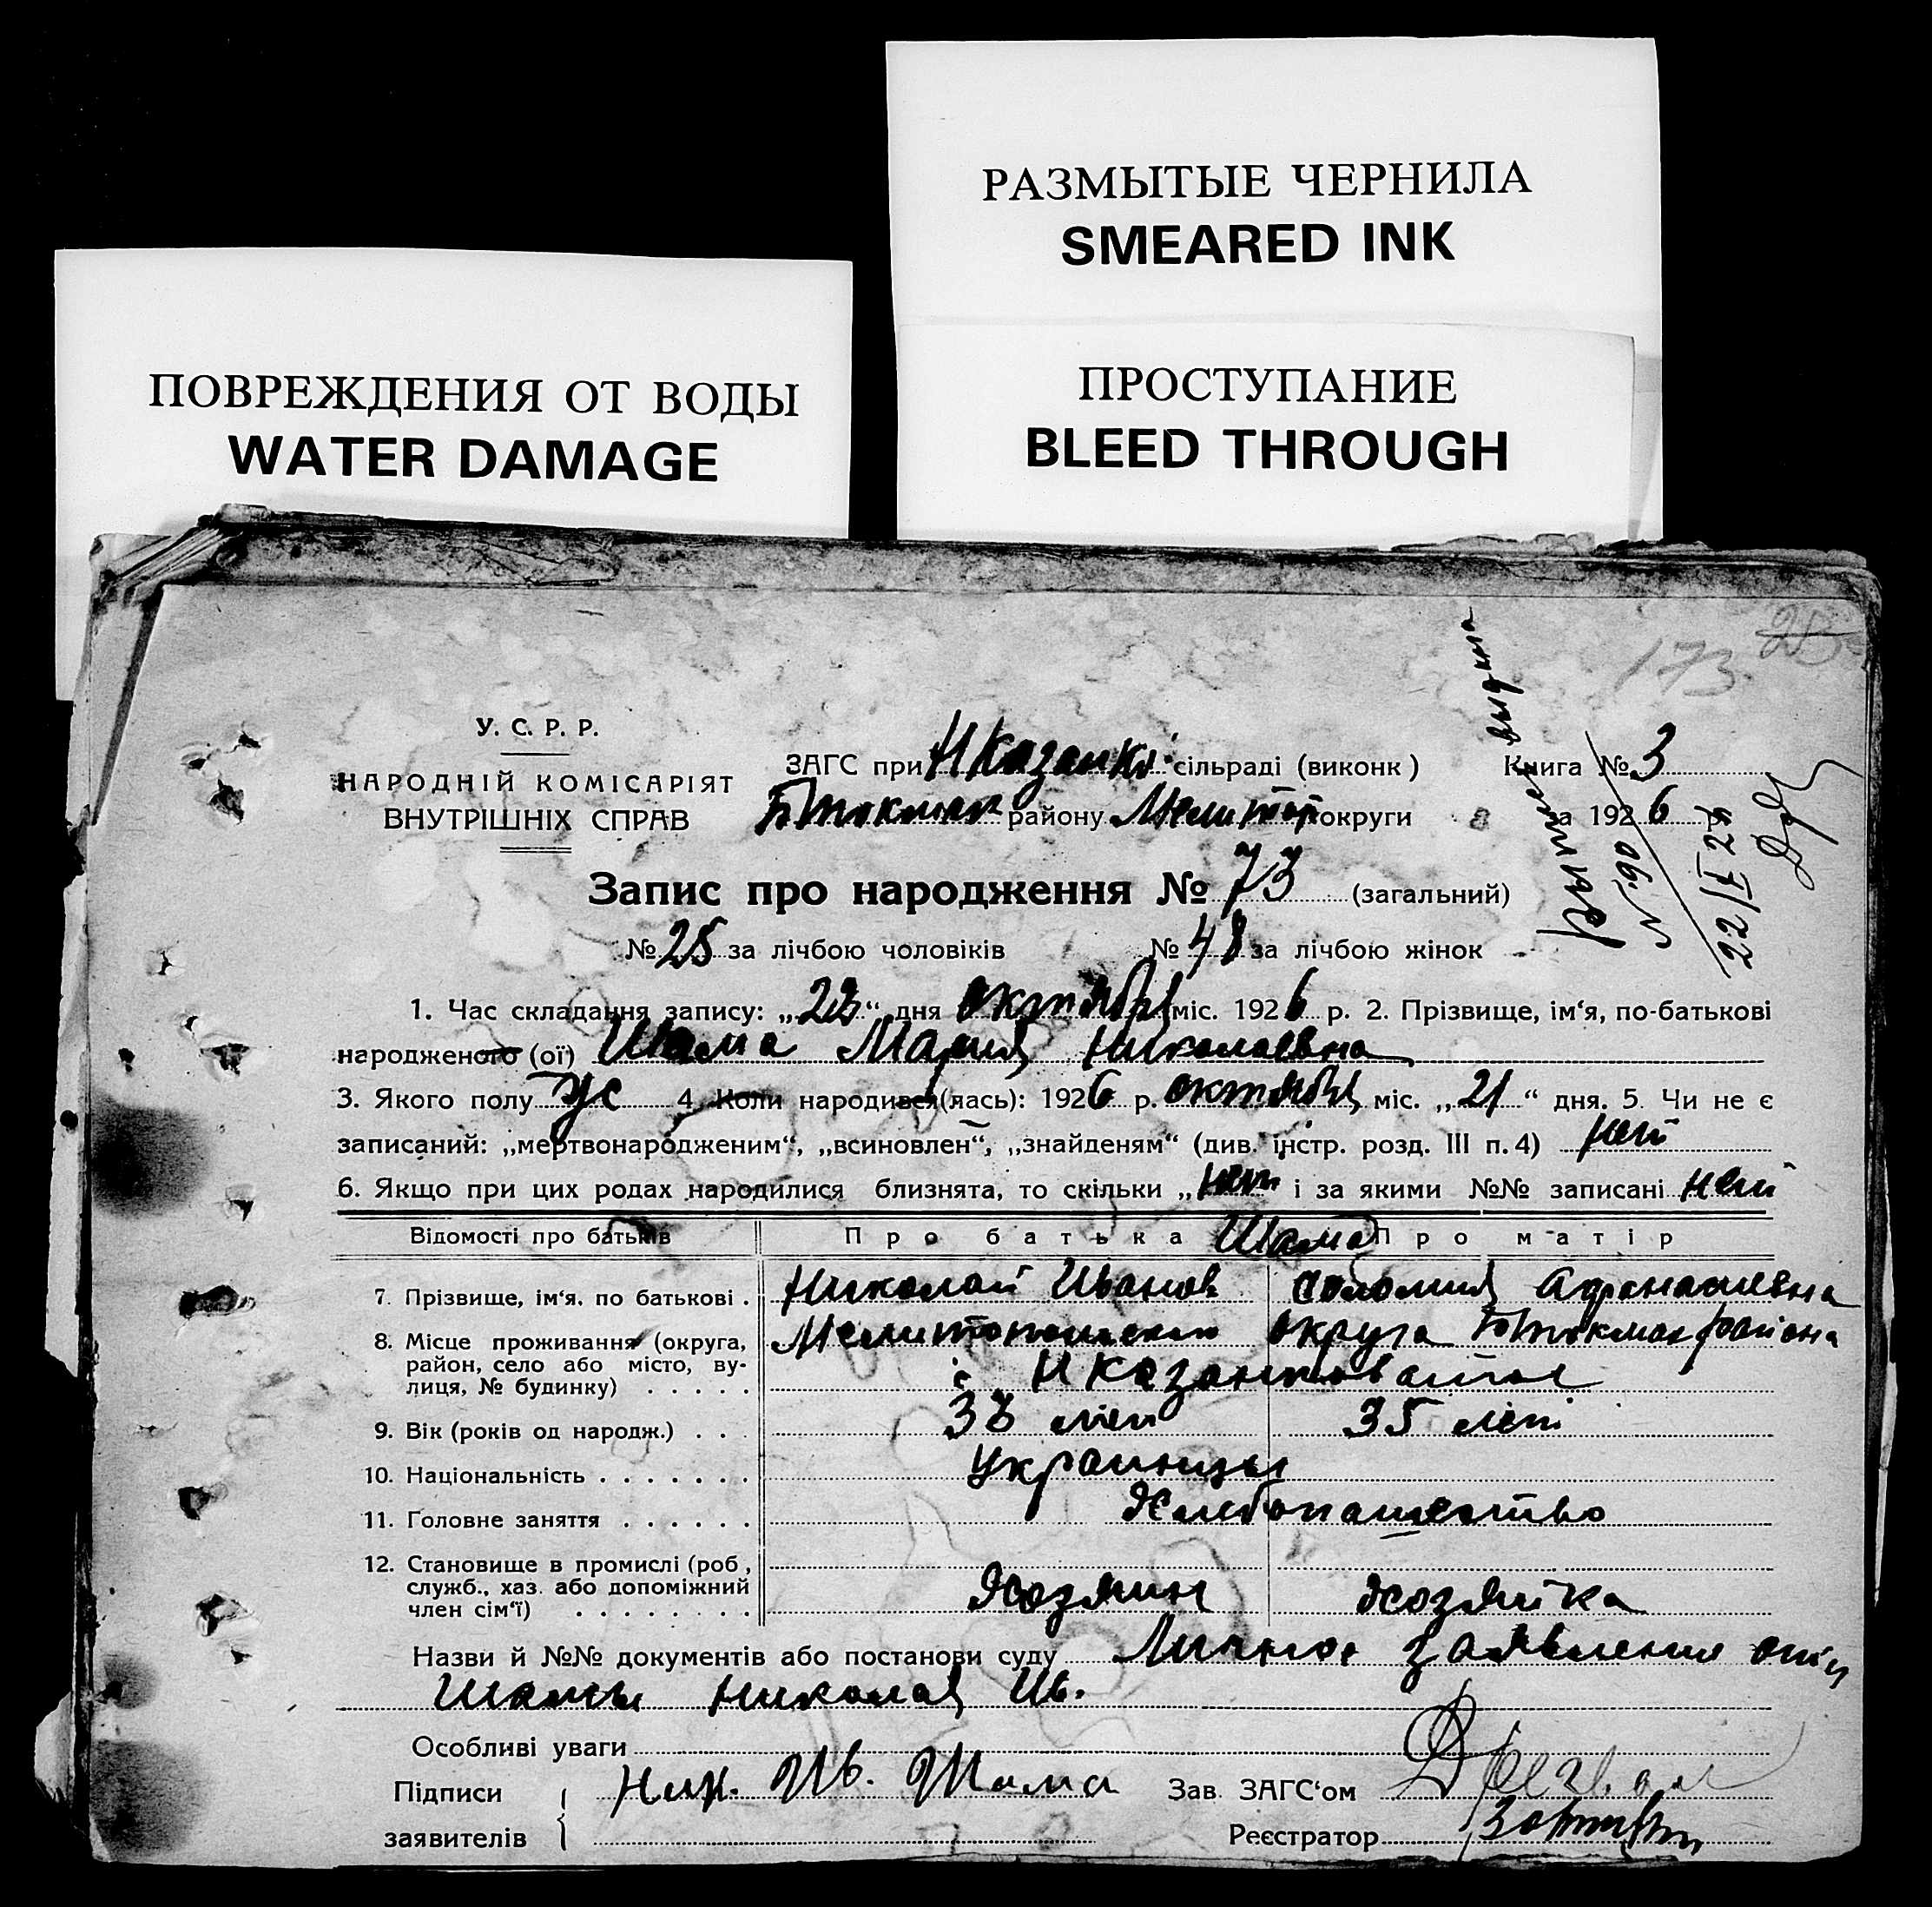 РАЗМЫТЫЕ ЧЕРНИЛА
SMEARED INK
ПОВРЕЖДЕНИЯ ОТ ВОДЫ
WATER DAMAGE
ПРОСТУПАНИЕ
BLEED THROUGH
173
У. С. Р. Р.
НАРОДНІЙ КОМІСАРІЯТ
ВНУТРІШНІХ СПРАВ
ЗАГС при сільраді (виконк) Книга № 3
Бтокмак району Мелитоп округи за 1926 р.
№ 90
22/ 29
Запис про народження № 73 (загальний)
№ 25 за лічбою чоловіків № 48 за лічбою жінок
1. Час складання запису: „ “ дня октября міс. 1926 р. 2. Прізвище, ім‘я, по-батькові
народженого (ої) Шама Мария Николаевна
3. Якого полу ж 4. Коли народився(лась): 1926 р. октября міс. „21“ дня. 5. Чи не є
записаний: „мертвонародженим“, „всиновлен“, „знайденям“ (див. інстр. розд. III п. 4) нет
6. Якщо при цих родах народилися близнята, то скільки „нет і за якими №№ записані нет
Відомості про батьків Про батька Шама Про матір
7. Прізвище, ім‘я, по батькові . Николай Иванов Соломия Афанасиевна
8. Місце проживання (округа, район, село або місто, ву-лиця, № будинку) . . . . . Мелитопольского округа Бтокмак района
с Нказанковатое
9. Вік (років од народж.) . . . 38 лет 35 лет
10. Національність . . . . . . . Украинцы
11. Головне заняття . . . . . . Хлебопашество
12. Становище в промислі (роб, служб., хаз. або допоміжний член сім‘ї) . . . . . . . . Хозяин Хозяйка
Назви й №№ документів або постанови суду Личное заявления отца
Шамы Николая Ив.
Особливі уваги
Підписи Ник. Ив. Шама Зав. ЗАГС‘ом
заявителів Реєстратор